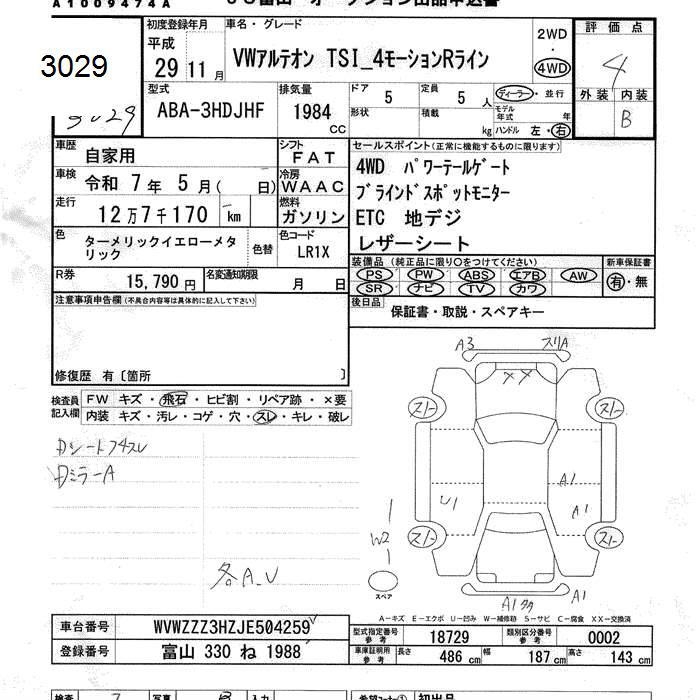 A1009474A
3029
3029
初度登録年月
平成
29 11 月
車名・グレード
VWアルテオン TSI_4モーションRライン
2WD
・
4WD
評価点
4
外装 内装
B
型式
ABA-3HDJHF
排気量
1984
CC
ドア
5
定員
5 人
形状
積載
kg
ディーラー・並行
モデル年式 年
ハンドル 左・右
車歴
自家用
シフト
FAT
車検
令和 7 年 5 月( 日)
冷房
WAAC
走行
12万7千170 km
燃料
ガソリン
色
ターメリックイエローメタリック
色替
色コード
LR1X
R券
15,790 円
名変通知期限
月 日
セールスポイント(正常に機能するものに限ります)
4WD パワーテールゲート
ブラインドスポットモニター
ETC 地デジ
レザーシート
装備品 (純正品に限り○をつけてください)
PS PW ABS エアB AW
SR ナビ TV カワ
新車保証書
有・無
後日品
保証書・取説・スペアキー
注意事項申告欄(不具合内容等は具体的に記入して下さい)
修復歴 有〔箇所 〕
検査員記入欄
FW キズ・飛石・ヒビ割・リペア跡・×要
内装 キズ・汚レ・コゲ・穴・スレ・キレ・破レ
Dシートフチスレ
DミラーA
各A、U
A3
スリA
××
スノー
スノー
U1
A1
A1
W2
スノー
スノー
スペア
A1
A1
A-キズ E-エクボ U-凹み W-補修跡 S-サビ C-腐食 XX-交換済
車台番号
WVWZZZ3HZJE504259
登録番号
富山 330 ね 1988
型式指定番号参考
18729
類別区分番号参考
0002
車庫証明用参考
長さ 486 cm 幅 187 cm 高さ 143 cm